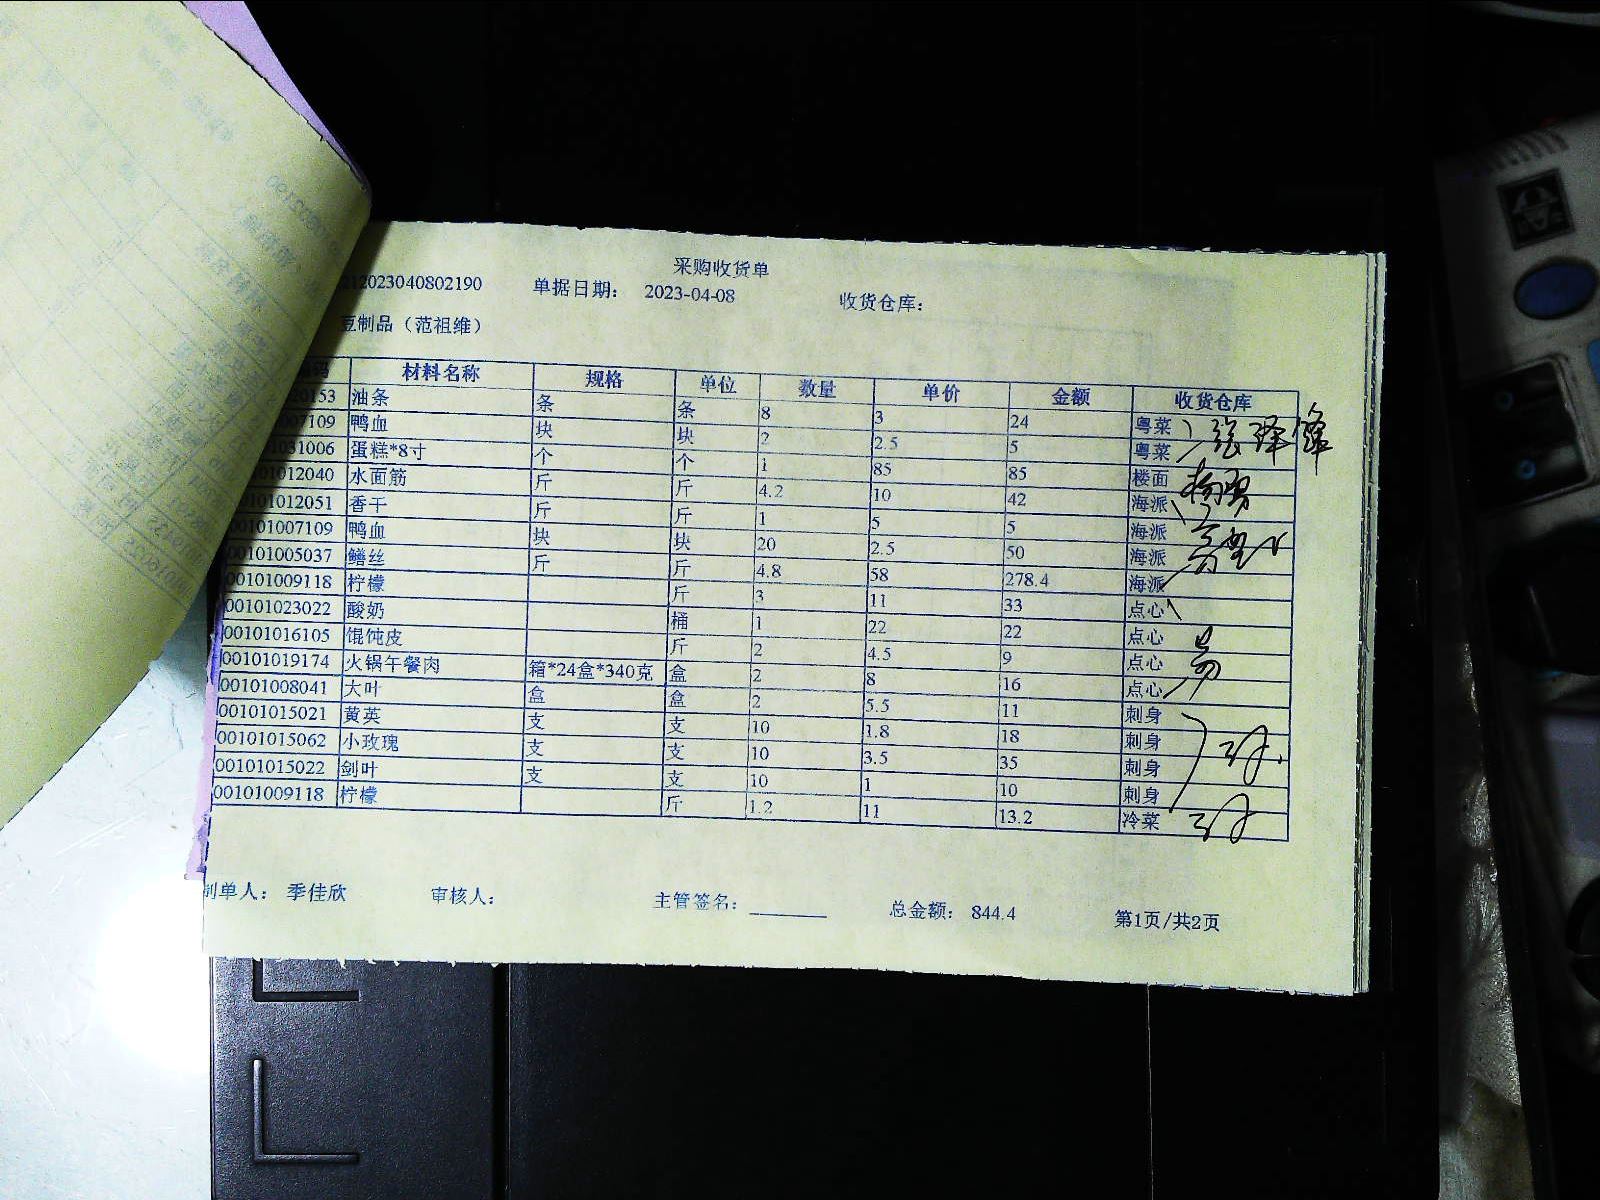 采购收货单
212023040802190 单据日期： 2023-04-08 收货仓库：
豆制品（范祖维）
码 材料名称 规格 单位 数量 单价 金额 收货仓库
20153 油条 条 条 8 3 24 粤菜
007109 鸭血 块 块 2 2.5 5 粤菜
031006 蛋糕*8寸 个 个 1 85 85 楼面
01012040 水面筋 斤 斤 4.2 10 42 海派
0101012051 香干 斤 斤 1 5 5 海派
00101007109 鸭血 块 块 20 2.5 50 海派
00101005037 鳝丝 斤 斤 4.8 58 278.4 海派
00101009118 柠檬 斤 3 11 33 点心
00101023022 酸奶 桶 1 22 22 点心
00101016105 馄饨皮 斤 2 4.5 9 点心
00101019174 火锅午餐肉 箱*24盒*340克 盒 2 8 16 点心
00101008041 大叶 盒 盒 2 5.5 11 刺身
00101015021 黄英 支 支 10 1.8 18 刺身
00101015062 小玫瑰 支 支 10 3.5 35 刺身
00101015022 剑叶 支 支 10 1 10 刺身
00101009118 柠檬 斤 1.2 11 13.2 冷菜
制单人： 季佳欣 审核人： 主管签名： 总金额： 844.4 第1页/共2页